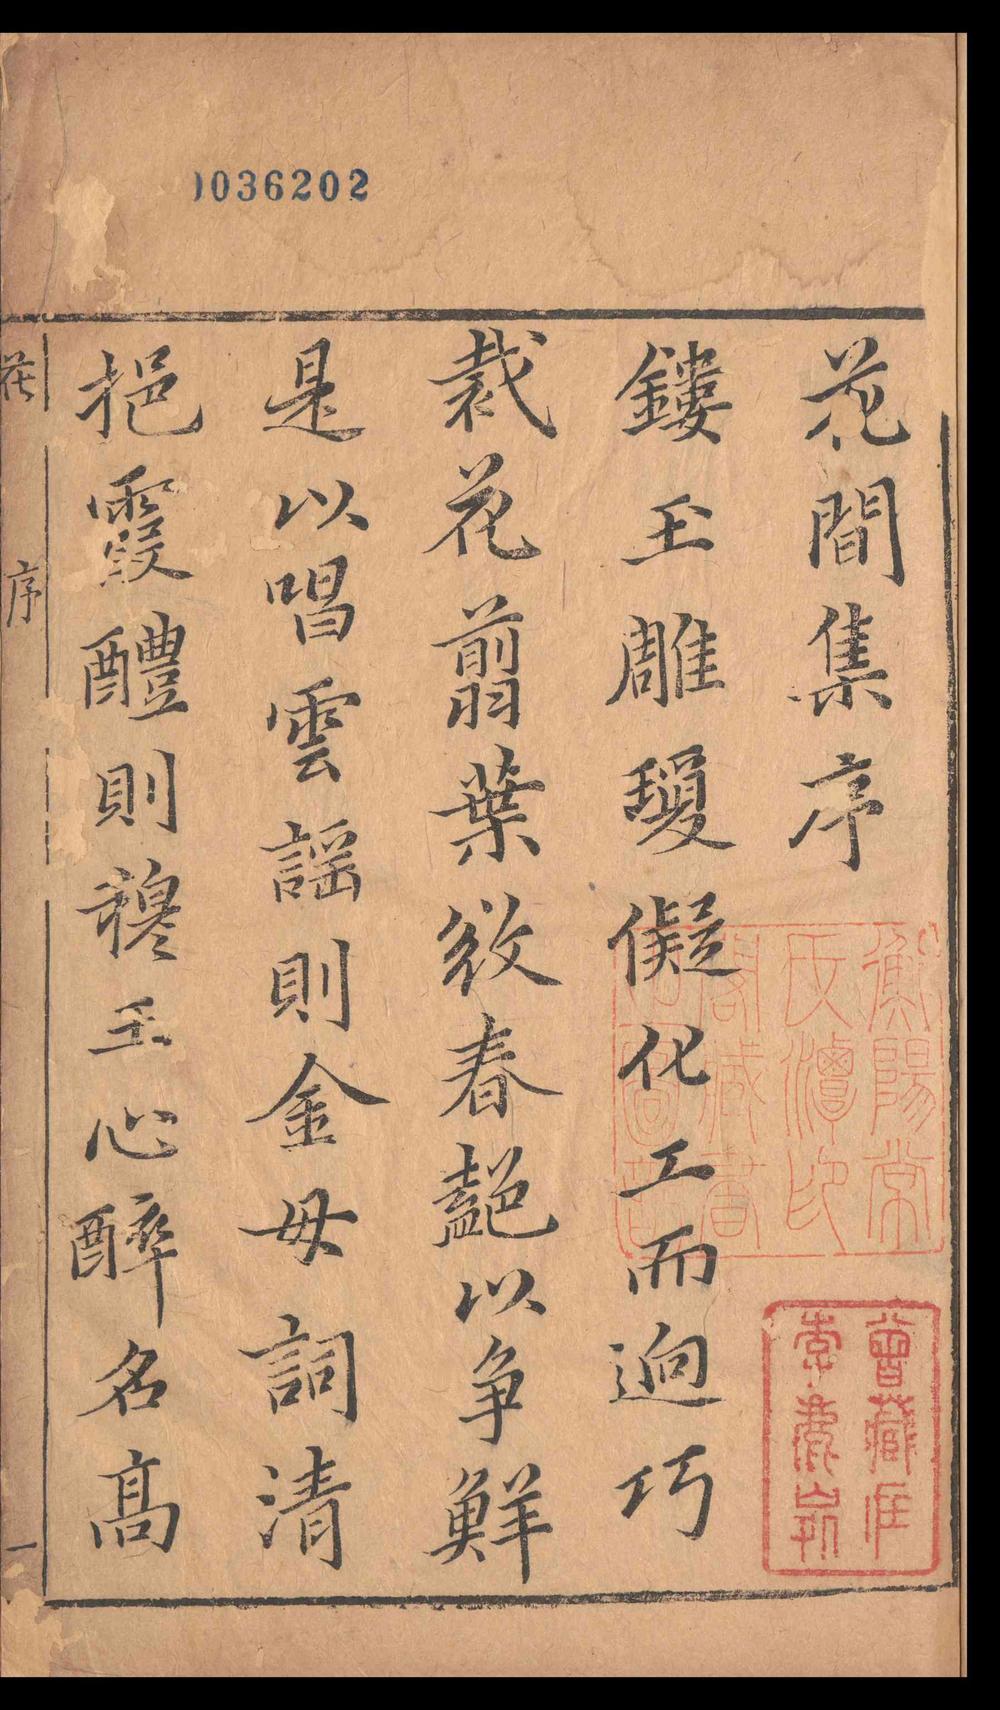 花間集序
鏤玉雕瓊儗化工而迥巧
裁花翦葉敓春艶以争鮮
是以唱雲謡則金母詞清
挹霞醴則穆王心醉名高
花 序 一
1036202
衡陽常
氏潭印
閣藏書
之圖記
曾藏